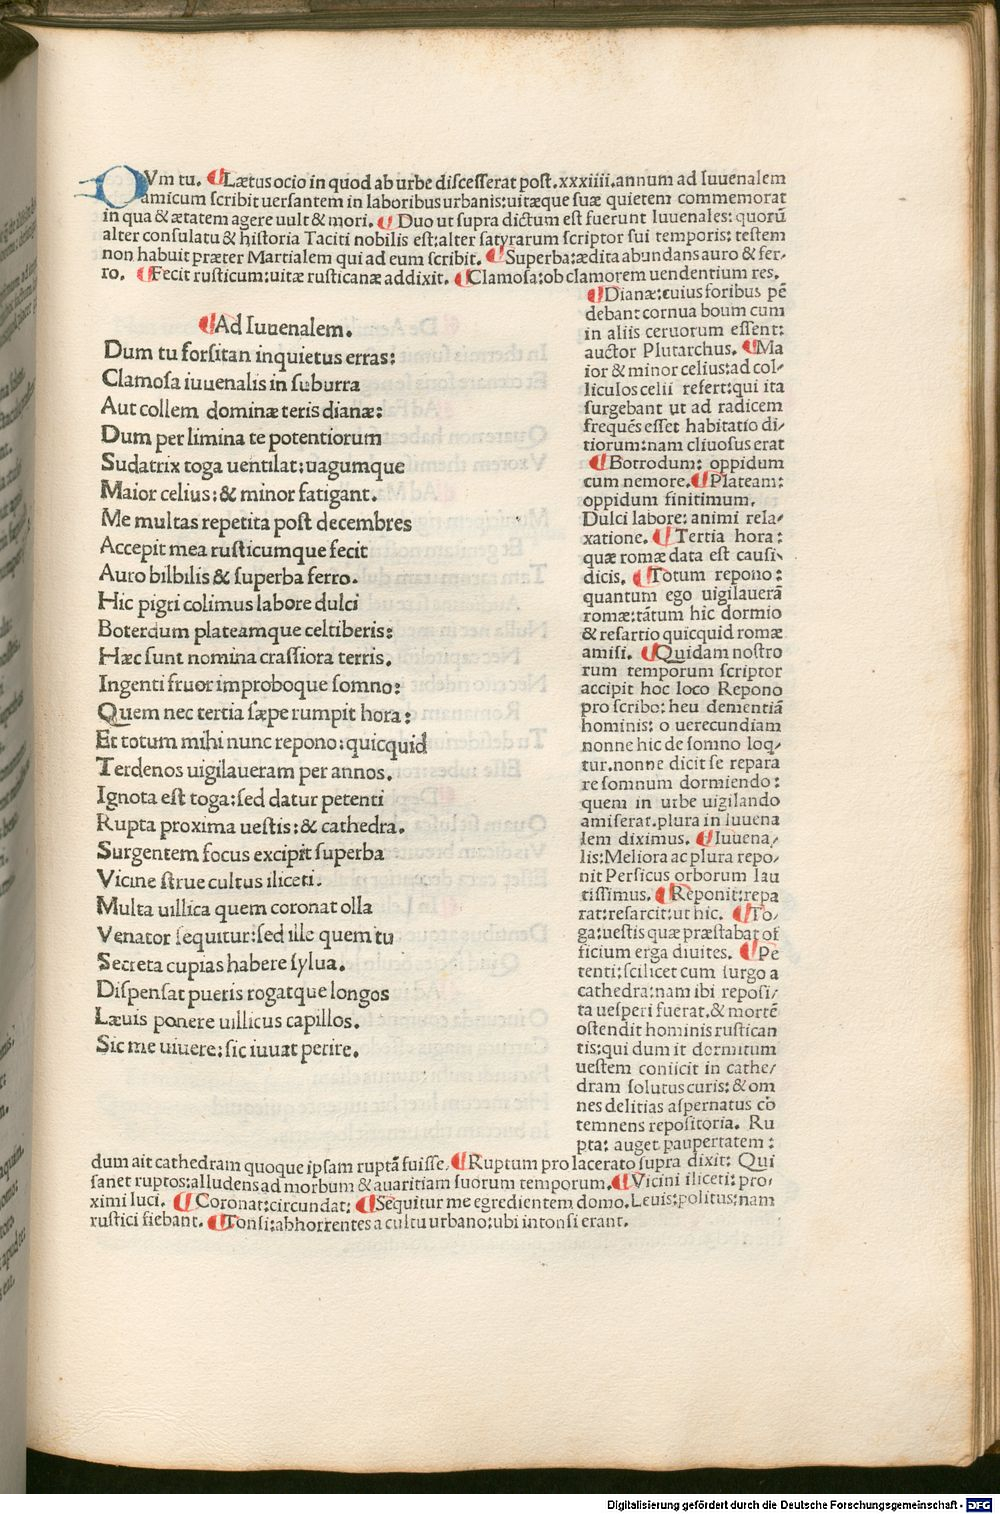 DVm tu. Lætus ocio in quod ab urbe discesserat post .xxxiiii. annum ad Iuuenalem
amicum scribit uersantem in laboribus urbanis: uitæque suæ quietem commemorat
in qua & ætatem agere uult & mori. Duo ut supra dictum est fuerunt Iuuenales: quorū
alter consulatu & historia Taciti nobilis est: alter satyrarum scriptor sui temporis: testem
non habuit præter Martialem qui ad eum scribit. Superba: ædita abundans auro & fer-
ro. Fecit rusticum: uitæ rusticanæ addixit. Clamosa: ob clamorem uendentium res.
Ad Iuuenalem.
Dum tu forsitan inquietus erras:
Clamosa iuuenalis in suburra
Aut collem dominæ teris dianæ:
Dum per limina te potentiorum
Sudatrix toga uentilat: uagumque
Maior celius: & minor fatigant.
Me multas repetita post decembres
Accepit mea rusticumque fecit
Auro bilbilis & superba ferro.
Hic pigri colimus labore dulci
Boterdum plateamque celtiberis:
Hæc sunt nomina crassiora terris.
Ingenti fruor improboque somno:
Quem nec tertia sæpe rumpit hora:
Et totum mihi nunc repono: quicquid
Terdenos uigilaueram per annos.
Ignota est toga: sed datur petenti
Rupta proxima uestis: & cathedra.
Surgentem focus excipit superba
Vicine strue cultus iliceti.
Multa uillica quem coronat olla
Venator sequitur: sed ille quem tu
Secreta cupias habere sylua.
Dispensat pueris rogatque longos
Læuis ponere uillicus capillos.
Sic me uiuere: sic iuuat perire.
Dianæ: cuius foribus pē
debant cornua boum cum
in aliis ceruorum essent:
auctor Plutarchus. Ma
ior & minor celius: ad col-
liculos celii refert: qui ita
surgebant ut ad radicem
frequēs esset habitatio di-
tiorum: nam cliuosus erat
Botrodum: oppidum
cum nemore. Plateam:
oppidum finitimum.
Dulci labore: animi rela-
xatione. Tertia hora:
quæ romæ data est causi-
dicis. Totum repono:
quantum ego uigilauerā
romæ: tātum hic dormio
& resartio quicquid romæ
amisi. Quidam nostro
rum temporum scriptor
accipit hoc loco Repono
pro scribo: heu dementiā
hominis: o uerecundiam
nonne hic de somno loq-
tur. nonne dicit se repara
re somnum dormiendo:
quem in urbe uigilando
amiserat. plura in Iuuena
lem diximus. Iuuena-
lis: Meliora ac plura repo-
nit Persicus orborum lau
tissimus. Reponit: repa
rat: resarcit: ut hic. To-
ga: uestis quæ præstabat of
ficium erga diuites. Pe
tenti: scilicet cum surgo a
cathedra: nam ibi reposi-
ta uesperi fuerat. & mortē
ostendit hominis rustican
tis: qui dum it dormitum
uestem coniicit in cathe-
dram solutus curis: & om
nes delitias aspernatus cō
temnens repositoria. Ru
pta: auget paupertatem:
dum ait cathedram quoque ipsam ruptā fuisse. Ruptum pro lacerato supra dixit: Qui
sanet ruptos: alludens ad morbum & auaritiam suorum temporum. Vicini iliceti: pro-
ximi luci. Coronat: circundat: Sequitur me egredientem domo. Leuis: politus: nam
rustici fiebant. Tonsi: abhorrentes a cultu urbano: ubi intonsi erant.
Digitalisierung gefördert durch die Deutsche Forschungsgemeinschaft - DFG